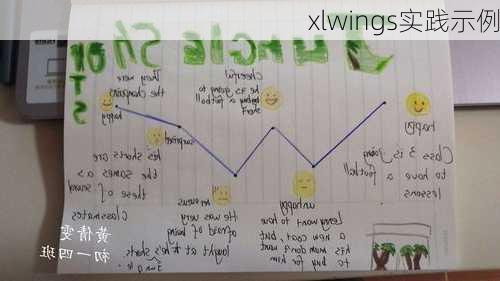 xlwings实践示例
Jungle Shorts
happy
Class 3 is going
to have a football
lessons
unhappy
Lenny want to have
a new coat, but
his mum don't want
to buy for him
Cheerful
he is going to
a football
short
nervous
He was very
afraid of being
laught at his shorts.
surprised
his shorts are
the sames as
these of
Classmates
They were
the champions
happy
黄倩雯
初一四班